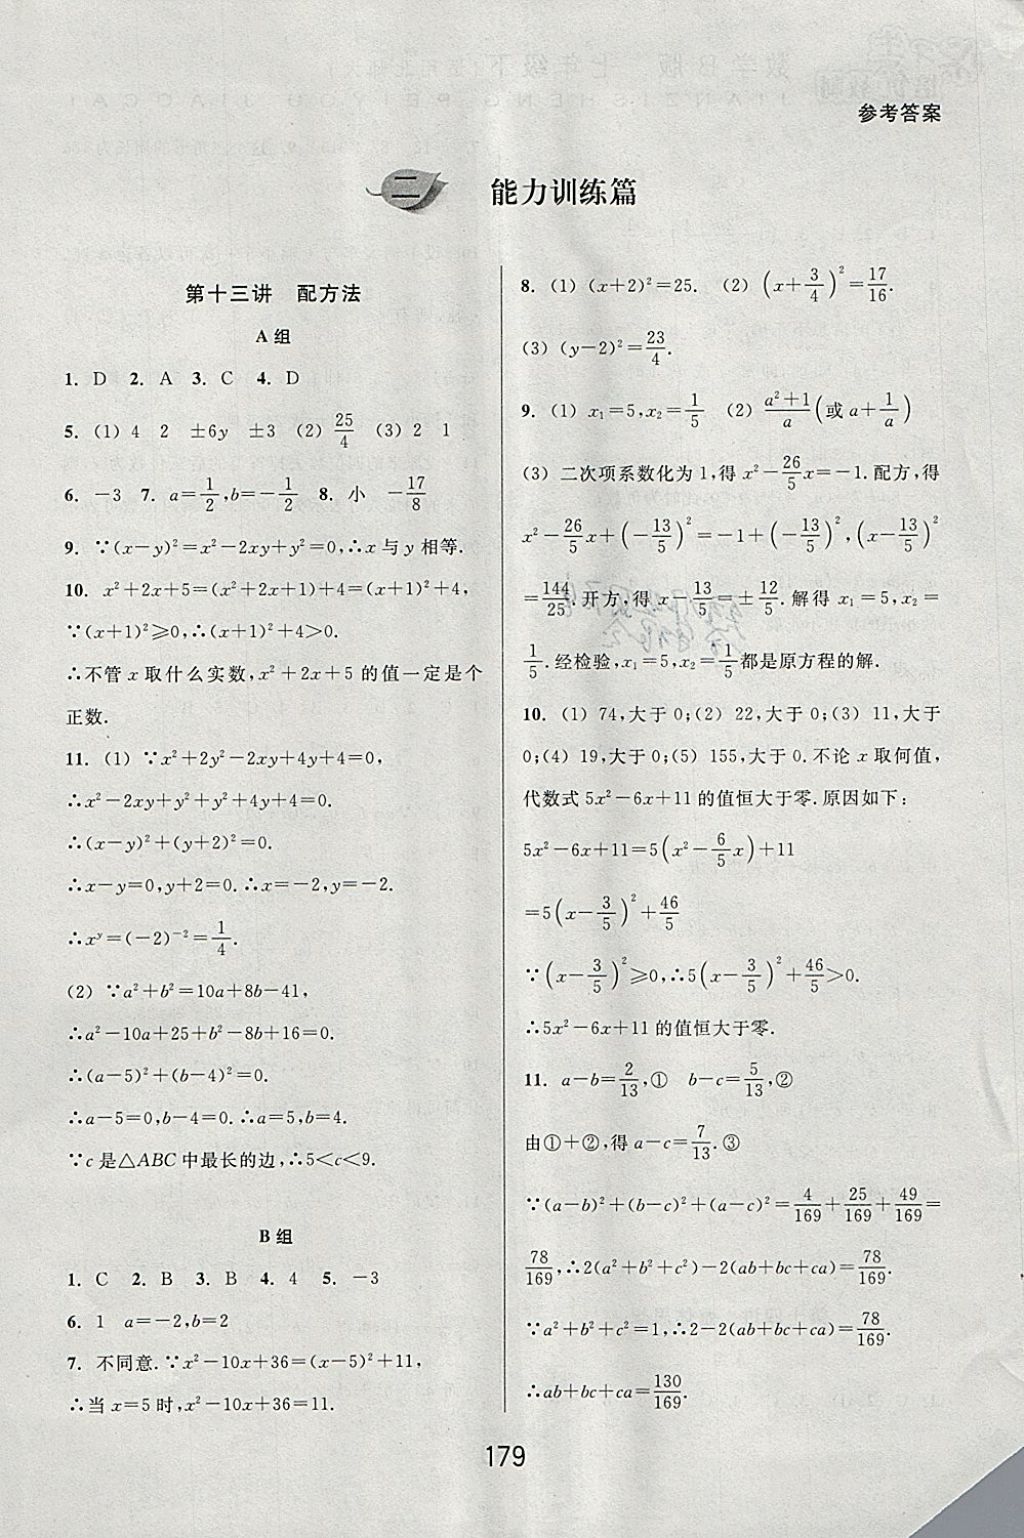 参考答案
二 能力训练篇
第十三讲 配方法
A 组
1. D 2. A 3. C 4. D
5. (1) 4 2 ±6y ±3 (2) 25/4 (3) 2 1
6. -3 7. a=1/2,b=-1/2 8. 小 -17/8
9. ∵(x-y)²=x²-2xy+y²=0,∴x 与 y 相等.
10. x²+2x+5=(x²+2x+1)+4=(x+1)²+4,
∵(x+1)²≥0,∴(x+1)²+4>0.
∴不管 x 取什么实数,x²+2x+5 的值一定是个
正数.
11. (1) ∵x²+2y²-2xy+4y+4=0,
∴x²-2xy+y²+y²+4y+4=0.
∴(x-y)²+(y+2)²=0.
∴x-y=0,y+2=0.∴x=-2,y=-2.
∴xʸ=(-2)⁻²=1/4.
(2) ∵a²+b²=10a+8b-41,
∴a²-10a+25+b²-8b+16=0.
∴(a-5)²+(b-4)²=0.
∴a-5=0,b-4=0.∴a=5,b=4.
∵c 是△ABC 中最长的边,∴5<c<9.
B 组
1. C 2. B 3. B 4. 4 5. -3
6. 1 a=-2,b=2
7. 不同意.∵x²-10x+36=(x-5)²+11,
∴当 x=5 时,x²-10x+36=11.
8. (1) (x+2)²=25. (2) (x+3/4)²=17/16.
(3) (y-2)²=23/4.
9. (1) x₁=5,x₂=1/5 (2) (a²+1)/a(或 a+1/a)
(3) 二次项系数化为 1,得 x²-26/5x=-1.配方,得
x²-26/5x+(-13/5)²=-1+(-13/5)²,(x-13/5)²
=144/25.开方,得 x-13/5=±12/5.解得 x₁=5,x₂=
1/5.经检验,x₁=5,x₂=1/5都是原方程的解.
10. (1) 74,大于 0;(2) 22,大于 0;(3) 11,大于
0;(4) 19,大于 0;(5) 155,大于 0.不论 x 取何值,
代数式 5x²-6x+11 的值恒大于零.原因如下:
5x²-6x+11=5(x²-6/5x)+11
=5(x-3/5)²+46/5
∵(x-3/5)²≥0,∴5(x-3/5)²+46/5>0.
∴5x²-6x+11 的值恒大于零.
11. a-b=2/13,① b-c=5/13,②
由①+②,得 a-c=7/13.③
∵(a-b)²+(b-c)²+(a-c)²=4/169+25/169+49/169=
78/169,∴2(a²+b²+c²)-2(ab+bc+ca)=78/169.
∵a²+b²+c²=1,∴2-2(ab+bc+ca)=78/169.
∴ab+bc+ca=130/169.
179